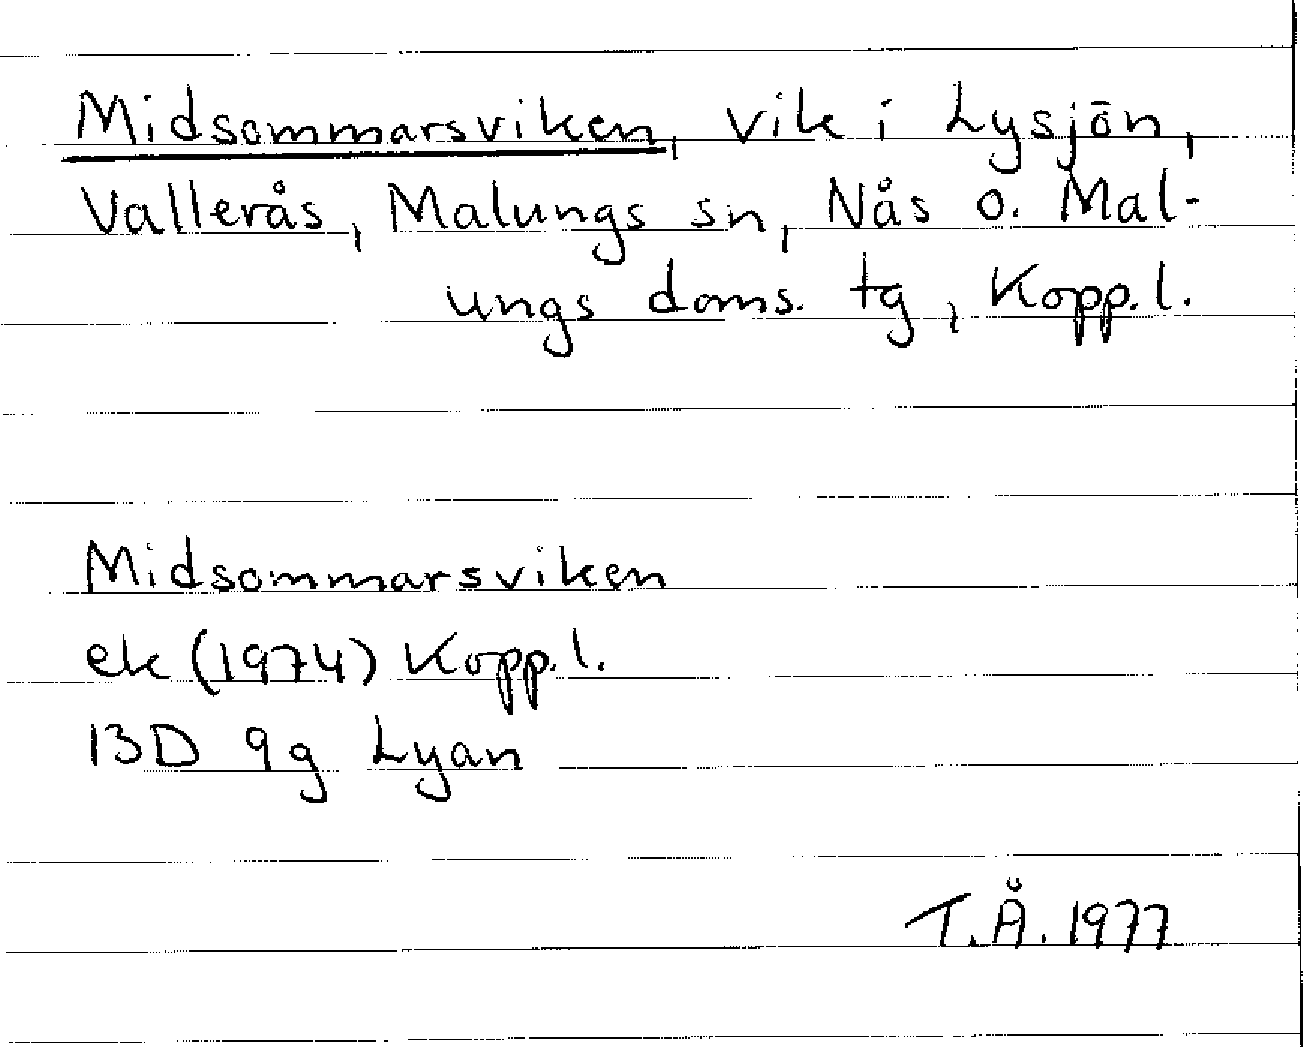 Midsommarsviken, vik i Lysjön,
Vallerås, Malungs sn, Nås o. Mal-
ungs doms. tg, Kopp. l.
Midsommarsviken
ek (1974) Kopp. l.
13D 9g Lyan
T.Å. 1977